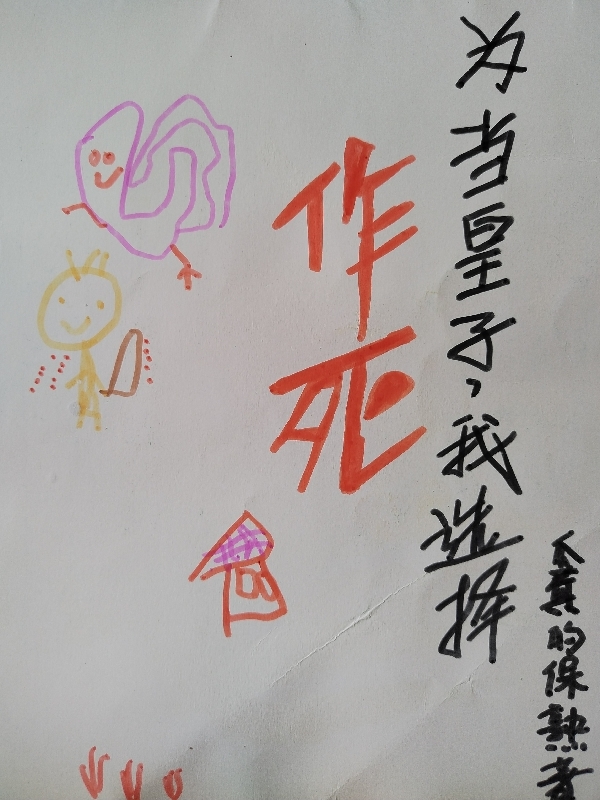 为当皇子，我选择
作死
瓜真的保熟着